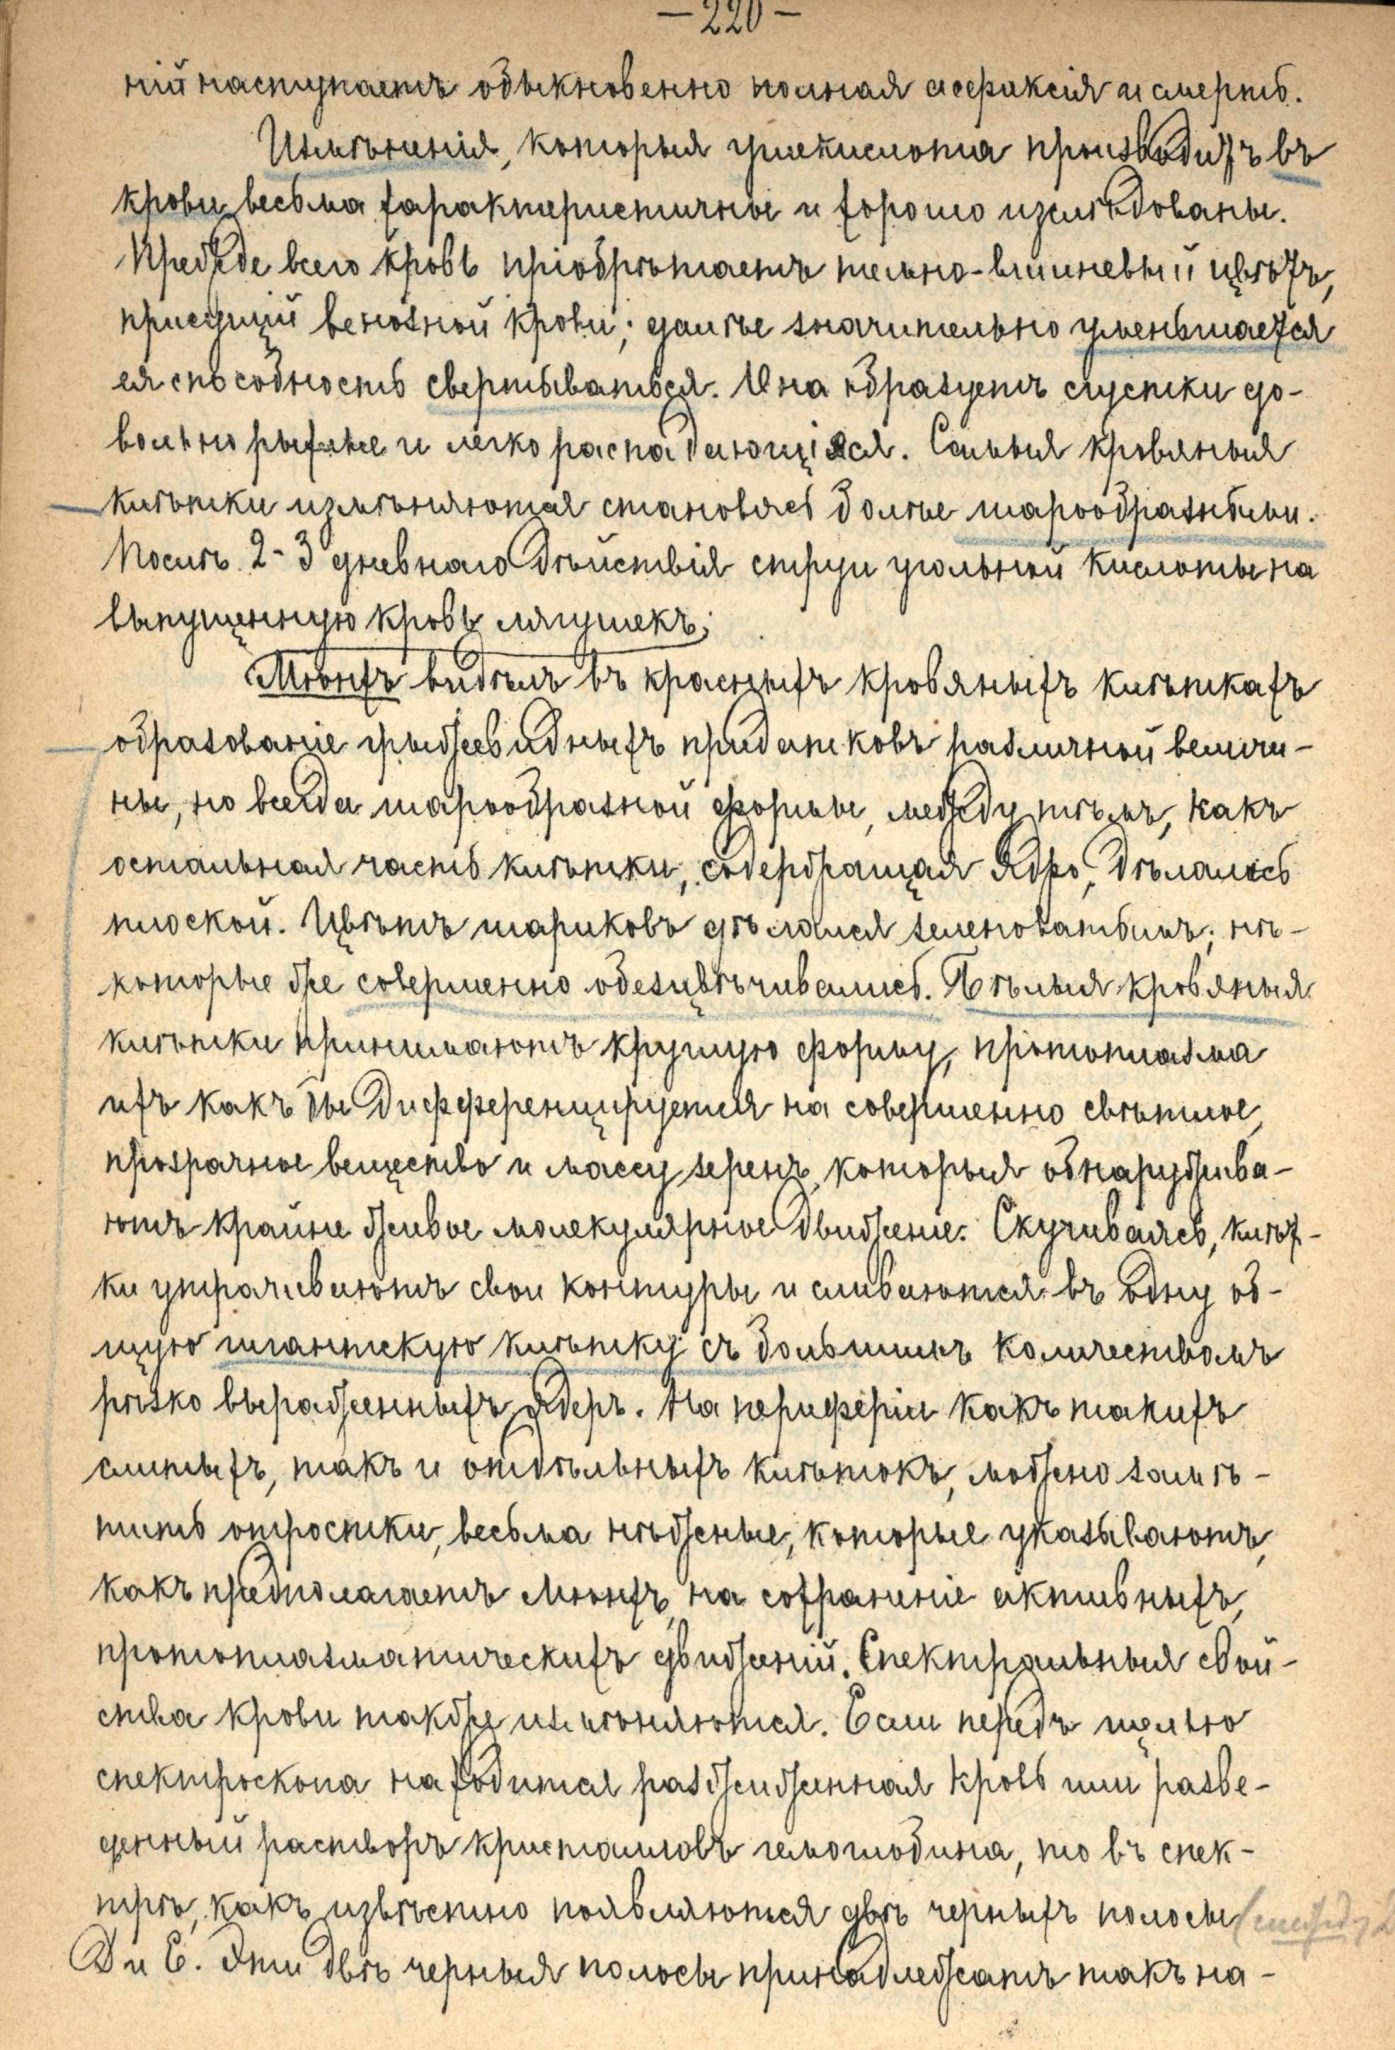 — 220 —
ній наступаетъ обыкновенно полная асфиксія и смерть.
Измѣненія, которыя углекислота производитъ въ
крови весьма характеристичны и хорошо изслѣдованы.
Прежде всего кровь пріобрѣтаетъ темно-вишневый цвѣтъ,
присущій венозной крови; далѣе значительно уменьшается
ея способность свертываться. Она образуетъ сгустки до-
вольно рыхлые и легко распадающіяся. Самыя кровяныя
клѣтки измѣняются становясь болѣе шарообразными.
Послѣ 2-3 дневнаго дѣйствія струи угольной кислоты на
выпущенную кровь лягушекъ,
Мюнхъ видѣлъ въ красныхъ кровяныхъ клѣткахъ
образованіе грыжевидныхъ придатковъ различной величи-
ны, но всегда шарообразной формы, между тѣмъ, какъ
остальная часть клѣтки, содержащая ядро, дѣлалась
плоской. Цвѣтъ шариковъ дѣлался зеленоватымъ; нѣ-
которые же совершенно обезцвѣчивались. Бѣлыя кровяныя
клѣтки принимаютъ круглую форму, протоплазма
ихъ какъ бы дифференцируется на совершенно свѣтлое,
прозрачное вещество и массу зеренъ, которыя обнаружива-
ютъ крайне живое молекулярное движеніе. Скучиваясь, клѣт-
ки утрачиваютъ свои контуры и сливаются въ одну об-
щую гигантскую клѣтку съ большимъ количествомъ
рѣзко выраженныхъ ядеръ. На периферіи какъ такихъ
слитыхъ, такъ и отдѣльныхъ клѣтокъ, можно замѣ-
тить отростки, весьма нѣжные, которые указываютъ,
какъ предполагаетъ Мюнхъ, на сохраненіе активныхъ,
протоплазматическихъ движеній. Спектральныя свой-
ства крови также измѣняются. Если передъ щелью
спектроскопа находится разжиженная кровь или разве-
денный растворъ кристалловъ гемоглобина, то въ спек-
трѣ, какъ извѣстно появляются двѣ черныхъ полосы (между
D и E. Эти двѣ черныя полосы принадлежатъ такъ на-